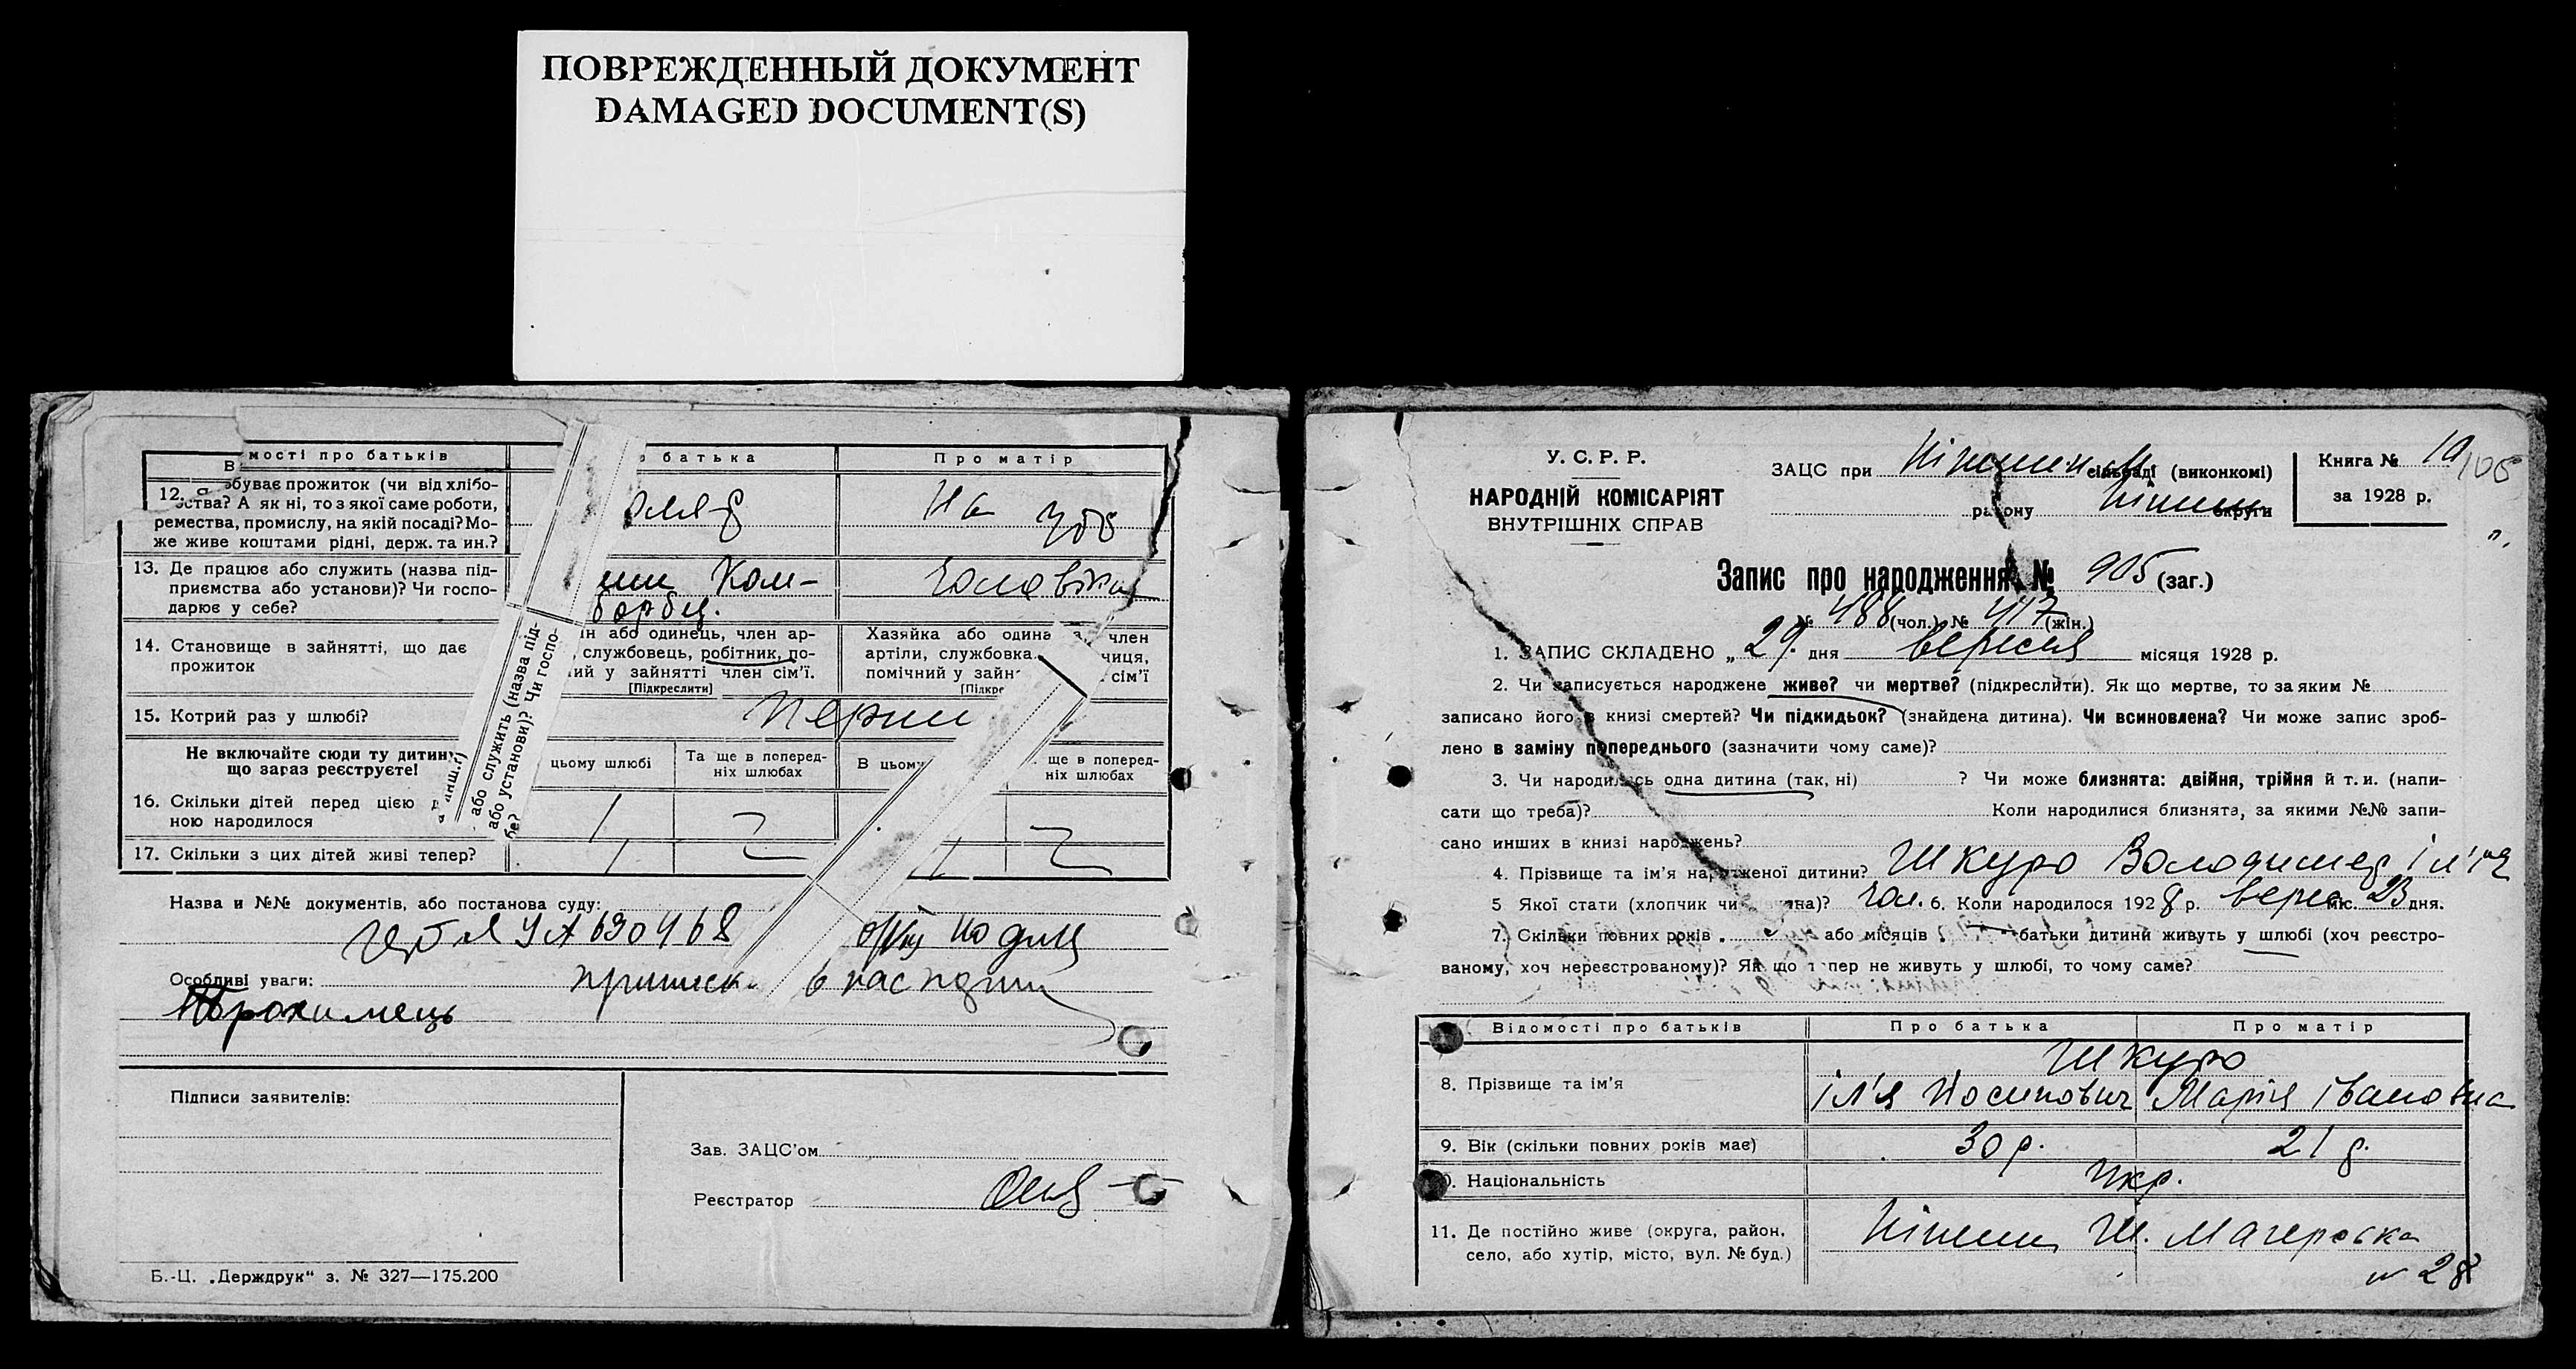 ПОВРЕЖДЕННЫЙ ДОКУМЕНТ
DAMAGED DOCUMENT(S)
мості про батьків
батька
Про матір
12. буває прожиток (чи від хлібо-
ства? А як ні, то з якої саме роботи,
ремества, промислу, на якій посаді? Мо-
же живе коштами рідні, держ. та ин.?
На
13. Де працює або служить (назва під-
приємства або установи)? Чи госпо-
дарює у себе?
Ком-
борбез.
чоловіка
14. Становище в зайнятті, що дає
прожиток
або одинець, член ар-
службовець, робітник, по-
ий у зайнятті член сім'ї.
[Підкреслити]
Хазяйка або один член
артіли, службовка
помічний у зайн сім'ї
15. Котрий раз у шлюбі?
перш
Не включайте сюди ту дитину
що зараз реєструєте!
цьому шлюбі
Та ще в поперед-
ніх шлюбах
В цьому
ще в поперед-
ніх шлюбах
або служить (назва під-
або установи)? Чи госпо-
бе?
16. Скільки дітей перед цією
ною народилося
1
17. Скільки з цих дітей живі тепер?
1
Назва и №№ документів, або постанова суду:
УА 630468
Особливі уваги:
Підписи заявителів:
Зав. ЗАЦС'ом
Реєстратор
Б.-Ц. „Держдрук“ з. № 327—175.200
У. С. Р. Р.
НАРОДНІЙ КОМІСАРІЯТ
ВНУТРІШНІХ СПРАВ
ЗАЦС при Ніжинськ сільраді (виконкомі)
району Ніжин округи
Книга № 10
за 1928 р.
105
Запис про народження № 905 (заг.)
№ 488 (чол.) № 417 (жін.)
1. ЗАПИС СКЛАДЕНО „29. дня вересня місяця 1928 р.
2. Чи записується народжене живе? чи мертве? (підкреслити). Як що мертве, то за яким №
записано його в книзі смертей? Чи підкидьок? (знайдена дитина). Чи всиновлена? Чи може запис зроб-
лено в заміну попереднього (зазначити чому саме)?
3. Чи народилась одна дитина (так, ні) ? Чи може близнята: двійня, трійня й т. и. (напи-
сати що треба)? Коли народилися близнята, за якими №№ запи-
сано инших в книзі народжень?
4. Прізвище та ім'я народженої дитини? Шкуро Володимер Іл'іч
5 Якої стати (хлопчик чи дівчина)? чол. 6. Коли народилося 1928 р. верес міс. 23 дня.
7. Скільки повних років або місяців батьки дитини живуть у шлюбі (хоч реєстро-
ваному, хоч нереєстрованому)? Як що тепер не живуть у шлюбі, то чому саме?
Відомості про батьків
Про батька
Про матір
8. Прізвище та ім'я
Шкуро
Іл'я Йосипович
Марія Івановна
9. Вік (скільки повних років має)
30 р.
21 р.
10. Національність
Укр.
11. Де постійно живе (округа, район,
село, або хутір, місто, вул. № буд.)
Ніжин, Ш. Магеровска
№ 28